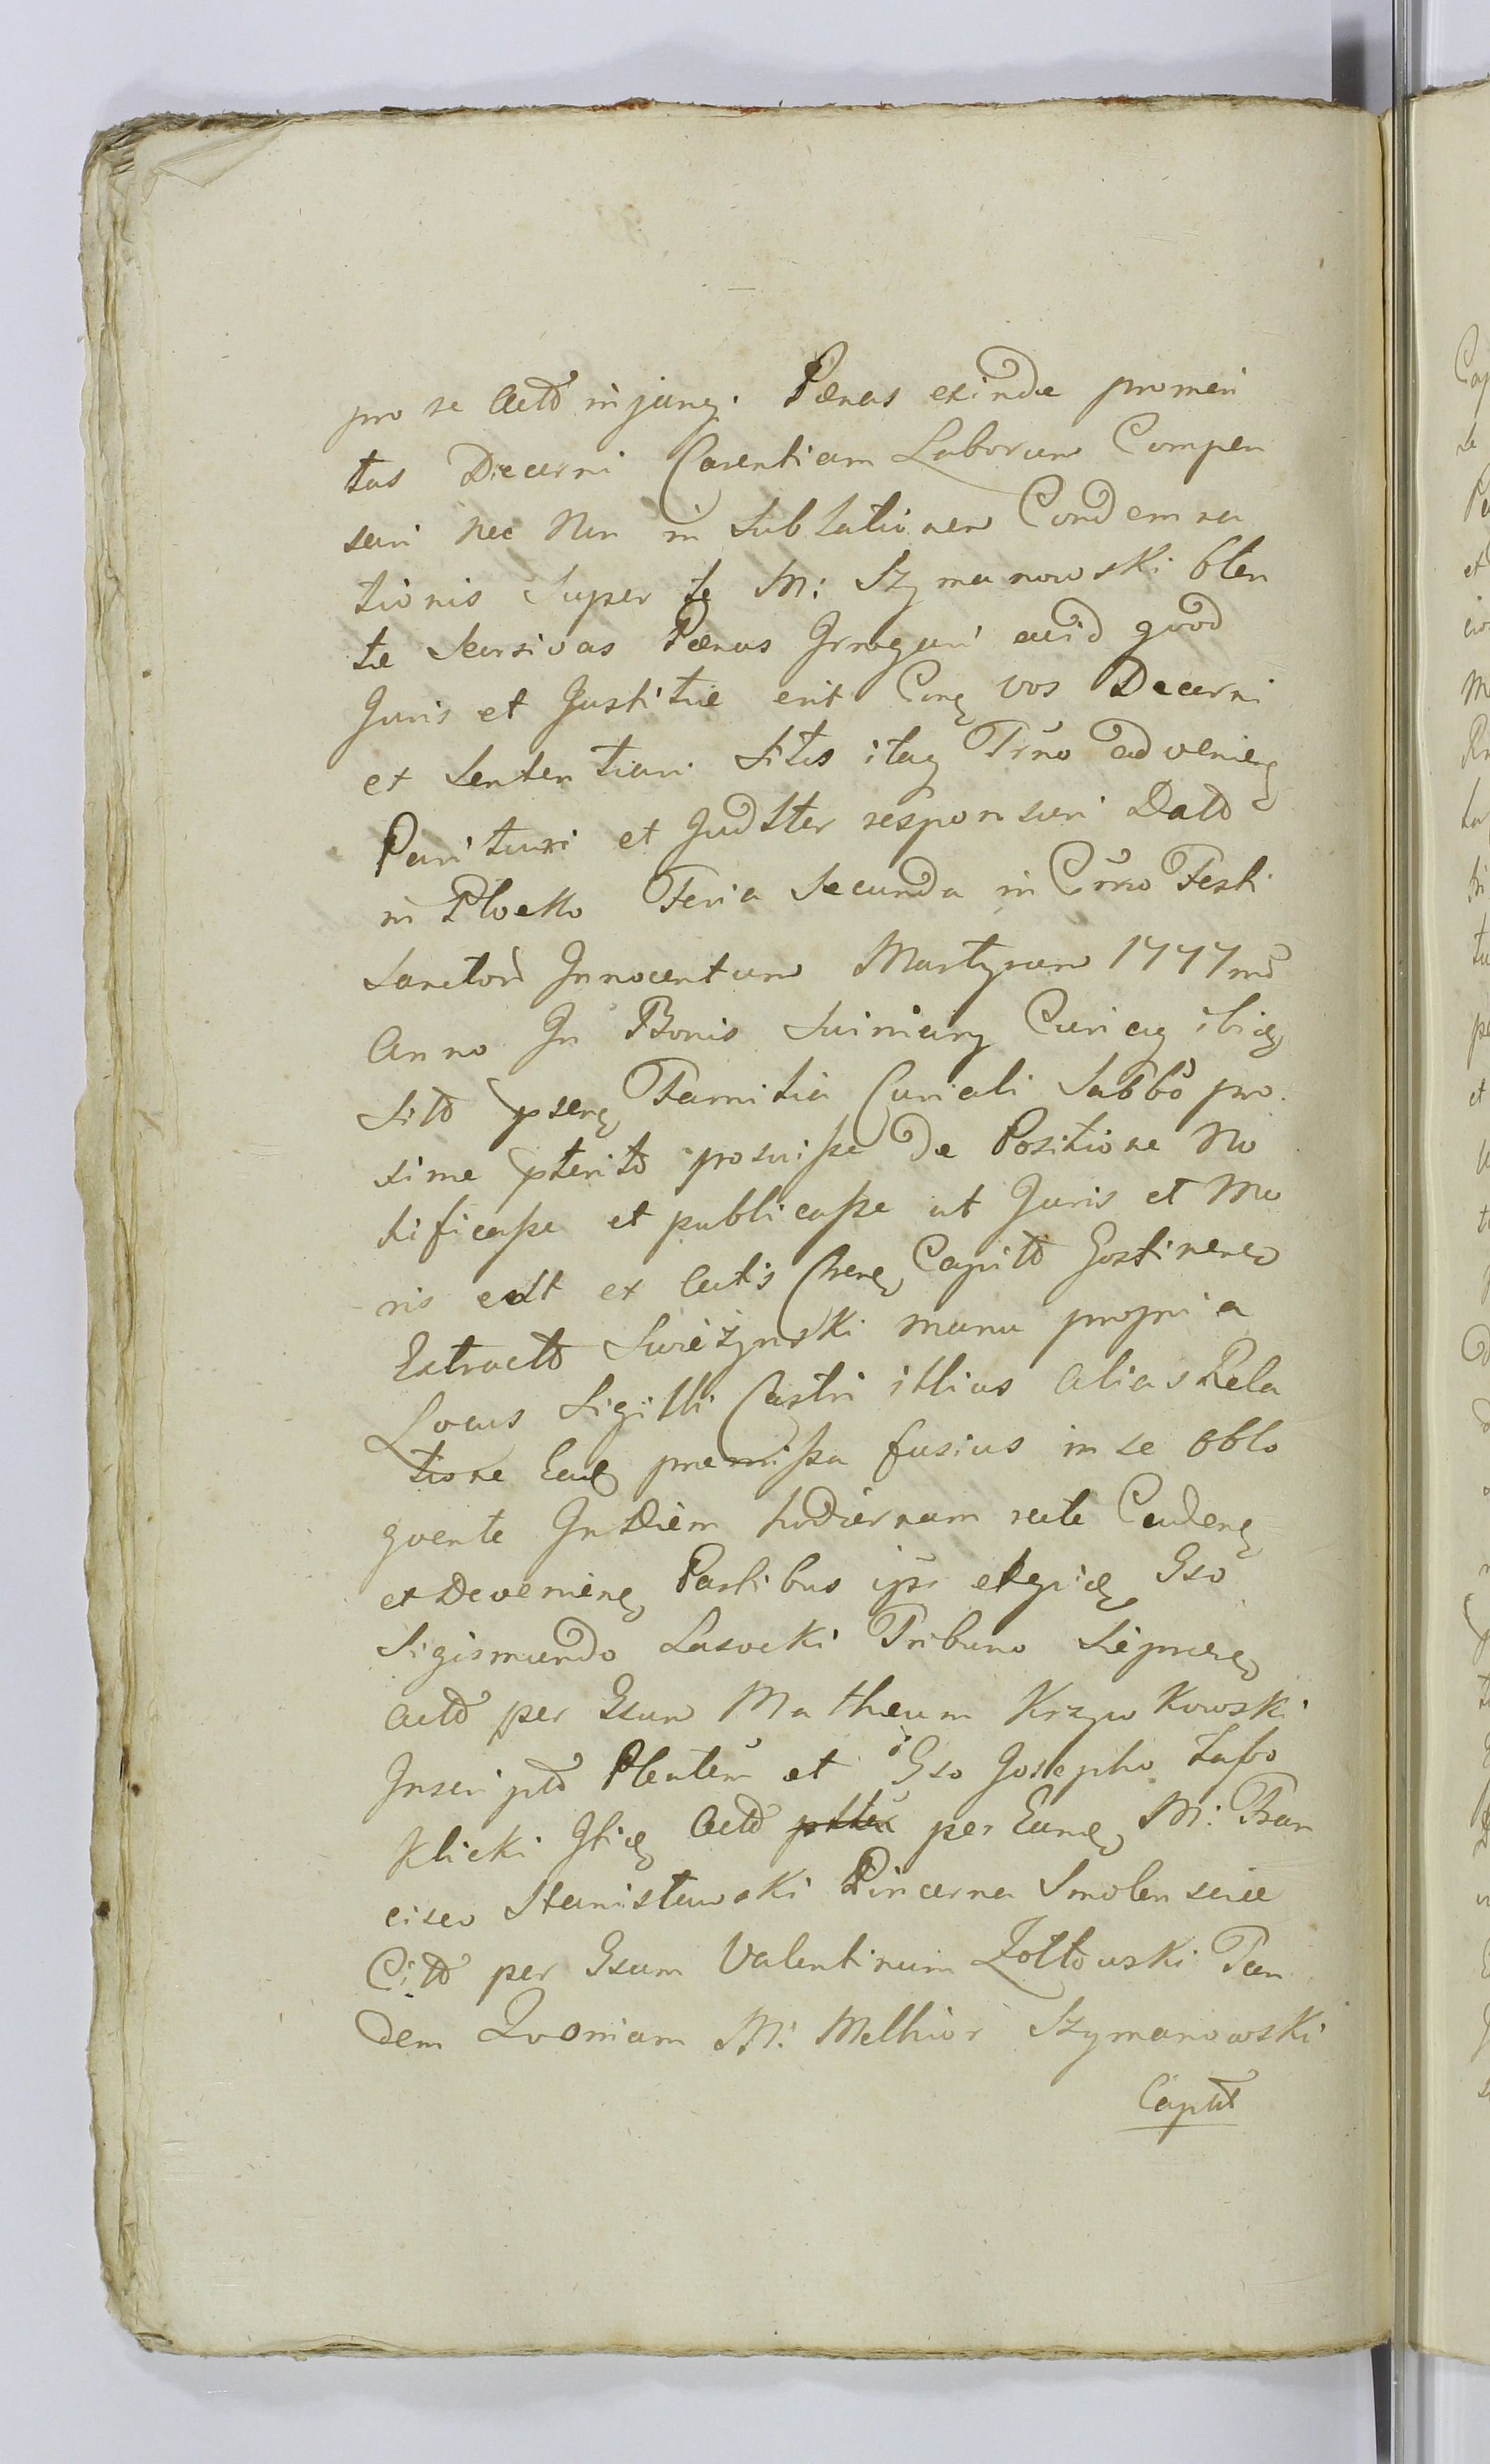 pro se Actō injung. Pænas exinde promeri
tas Decerni Carentiam Laborum Compen
sari nec Non in Sublationem Condemna
tionis Super te M: Szymanowski Obten
tæ Recursivas Pænas Irrogari aūd qvod
Juris et Justitiæ erit Conq vos Decerni
et Sententiari Sitis itaq Trno advenienq
Parituri et Judtter responsuri Datō
in Plocko Feria Secunda in Crrno Festi
Sanctorū Innocentum Martyrum 1777mō
Anno In Bonis Suiniary Curiaq ibidq
Sitō pserq Familiæ Curiali Sabbō pro
xime pteritō posuisse De Positione No
tificasse et publicasse ut Juris et Mo
ris est ex Actis Chrenq Capitō Gostinenō
Extractō Swieżynski manu propria
Locus Sigilli Castri illius alias Rela
tione Eadq præmissa fusius in se oblo
qvente In Diem hodiernam rite Cadenq
et Devenienq Partibus ipsr etqide Gso
Sigismundo Lasocki Tribuno Sieprcq
Actō per Gsum Matheum Krzywkowski
Inscriptō Plentem et Gso Josepho Łasso
Klicki Itidq Actō per Eundq M: Fran
cisco Stanisławski Pincerna Smolensciæ
Citō per Gsum Valentinum Zołtowski Tan
dem Qvoniam M: Melhior Szymanowski
Captūs